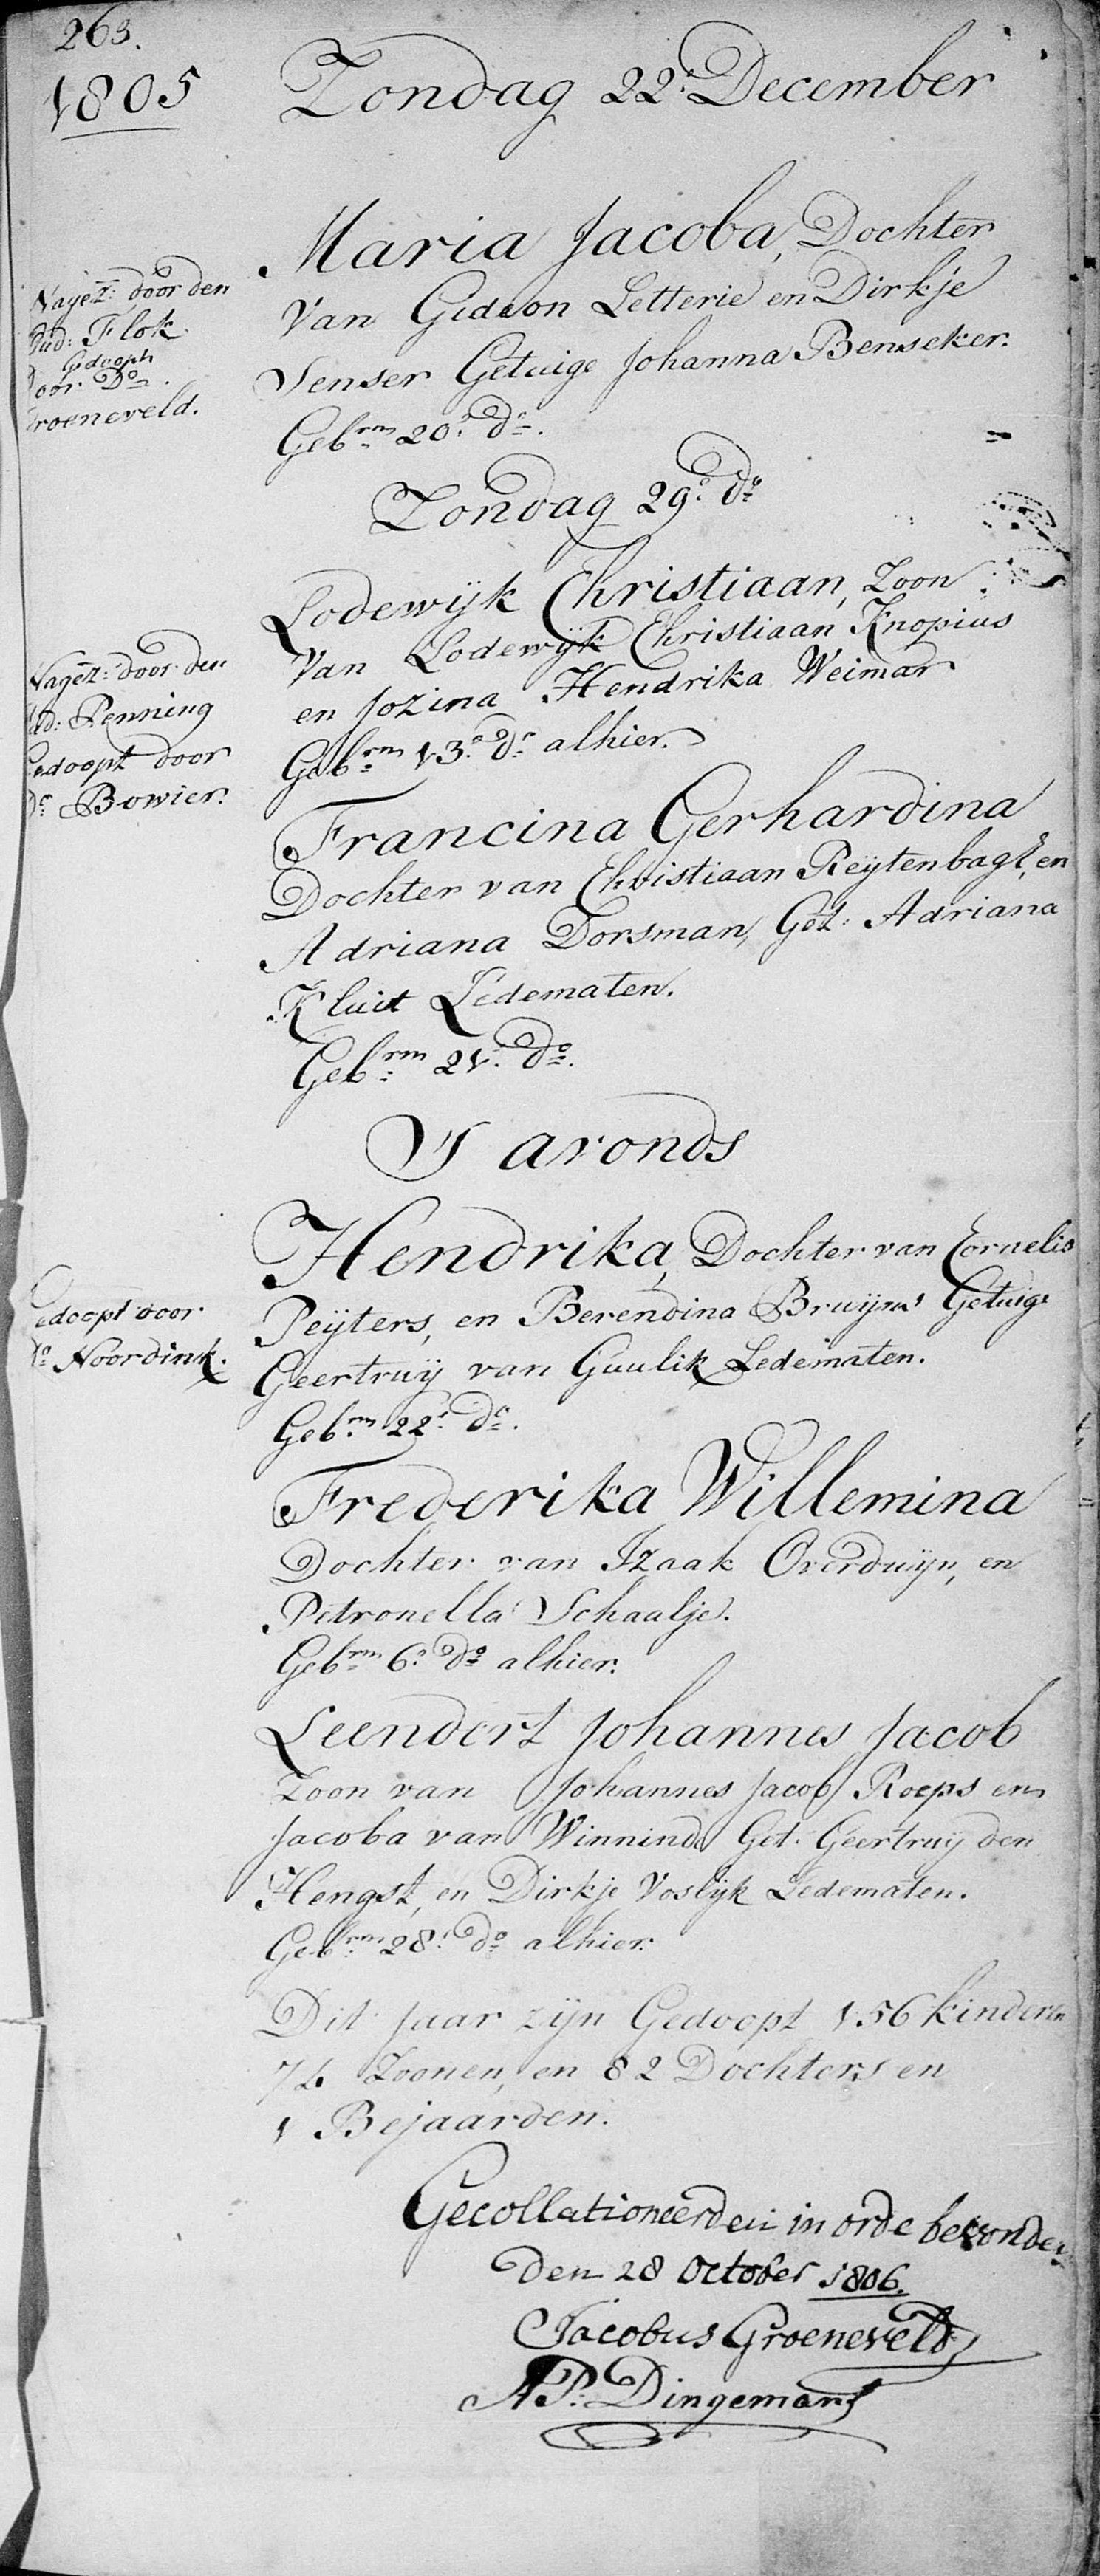 263.
1805
Zondag 22.' December
Maria Jacoba, Dochter
van Gideon Letterie en Dirkje
Senser Getuige Johanna Benseker.
Gebrm 20.' do.
Nagez: door den
Oud: Flok.
Gedoopt
door Do
Groeneveld.
Zondag 29.' do
Lodewijk Christiaan, Zoon
van Lodewijk Christiaan Knopius
en Jozina Hendrika Weimar
Gebrm 13.' do alhier.
Nagez: door den
Oud: Penning
Gedoopt door
Do Bowier.
Francina Gerhardina
Dochter van Christiaan Reijtenbagt, en
Adriana Dorsman, Get: Adriana
Kluit Ledematen.
Gebrm 21.' do.
S avonds
Hendrika, Dochter van Cornelis
Peijters, en Berendina Bruijns Getuige
Geertruij van Guulik Ledematen.
Gebrm 22.' do.
Gedoopt door
Do Noordink.
Frederika Willemina
Dochter van Izaak Overduijn, en
Petronella Schaalje.
Gebrm 6.' do alhier.
Leendert Johannes Jacob
Zoon van Johannes Jacob Roeps en
Jacoba van Winnind Get. Geertruij den
Hengst, en Dirkje Voslijk Ledematen.
Gebrm 28.' do alhier.
Dit Jaar zijn Gedoopt 156 kinderen
74 Zoonen, en 82 Dochters en
1 Bejaarden.
Gecollationeerd en in orde bevonden
den 28 October 1806.
Jacobus Groeneveld
A P: Dingemans